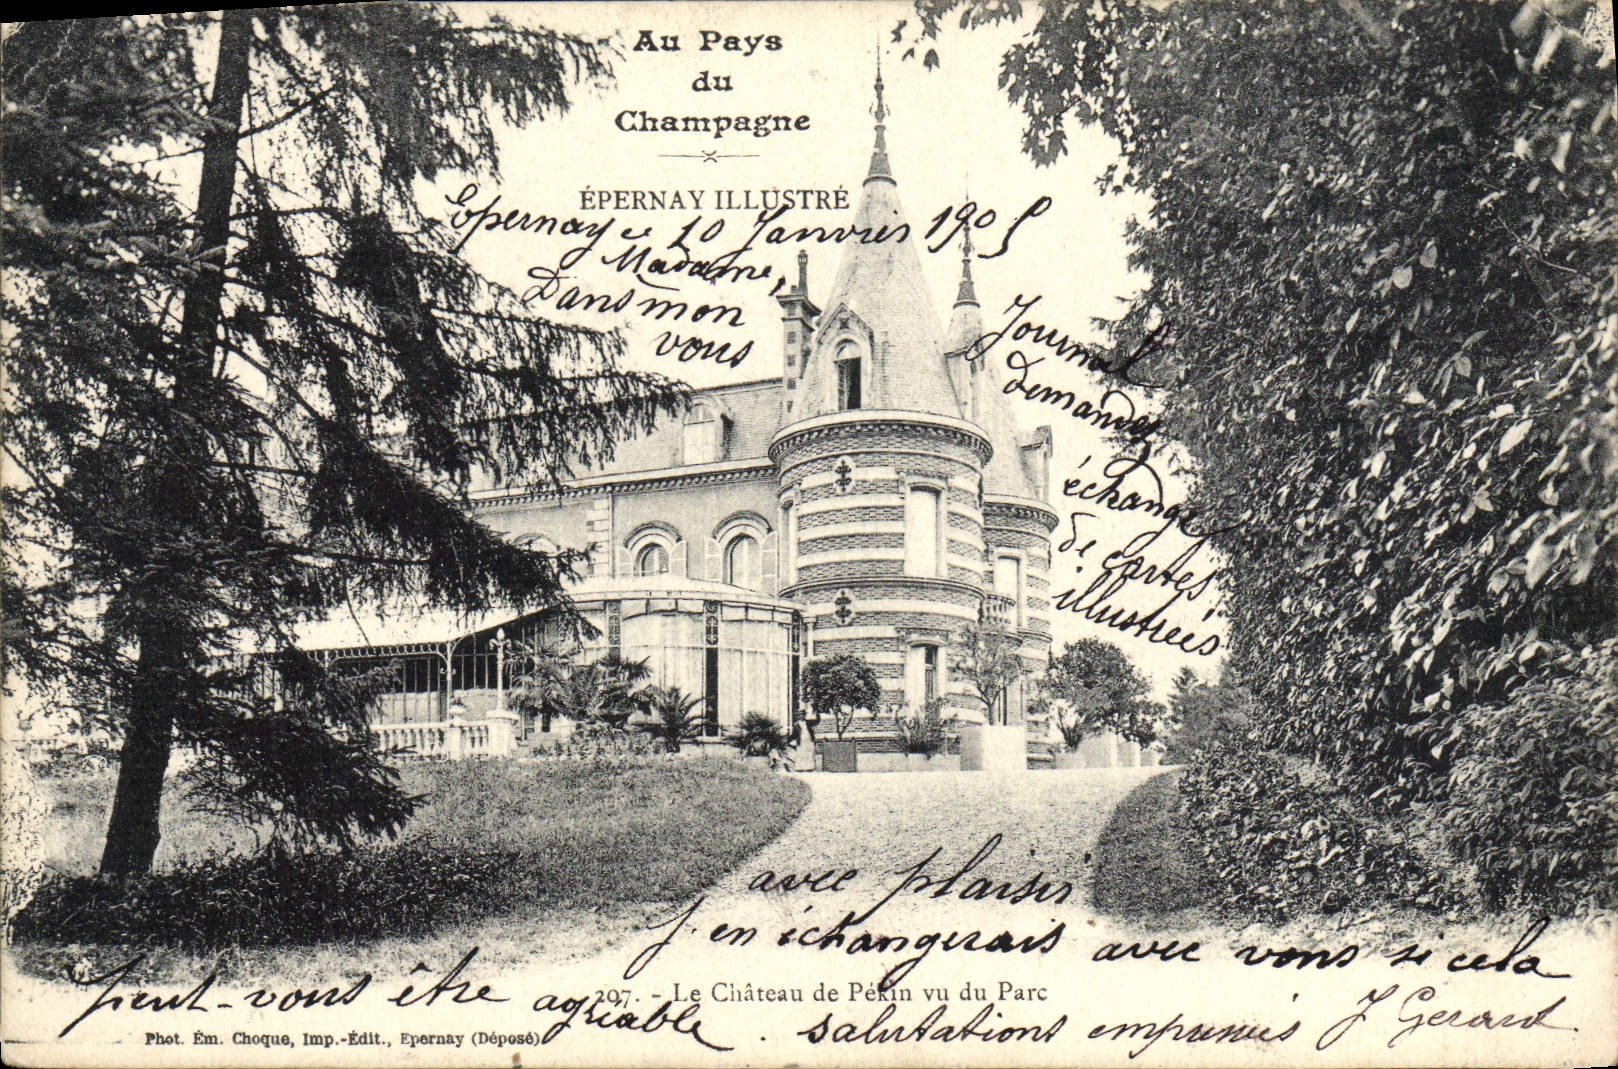 Au Pays
du
Champagne
ÉPERNAY ILLUSTRÉ
Epernay ce 10 Janvier 1905
Madame,
Dans mon Journal
vous demandez
échange
de cartes
illustrées
avec plaisir
j'en échangerais avec vous si cela
peut-vous être agréable. salutations empressées J Gerard.
207. - Le Château de Pékin vu du Parc
Phot. Ém. Choque, Imp.-Édit., Epernay (Déposé)